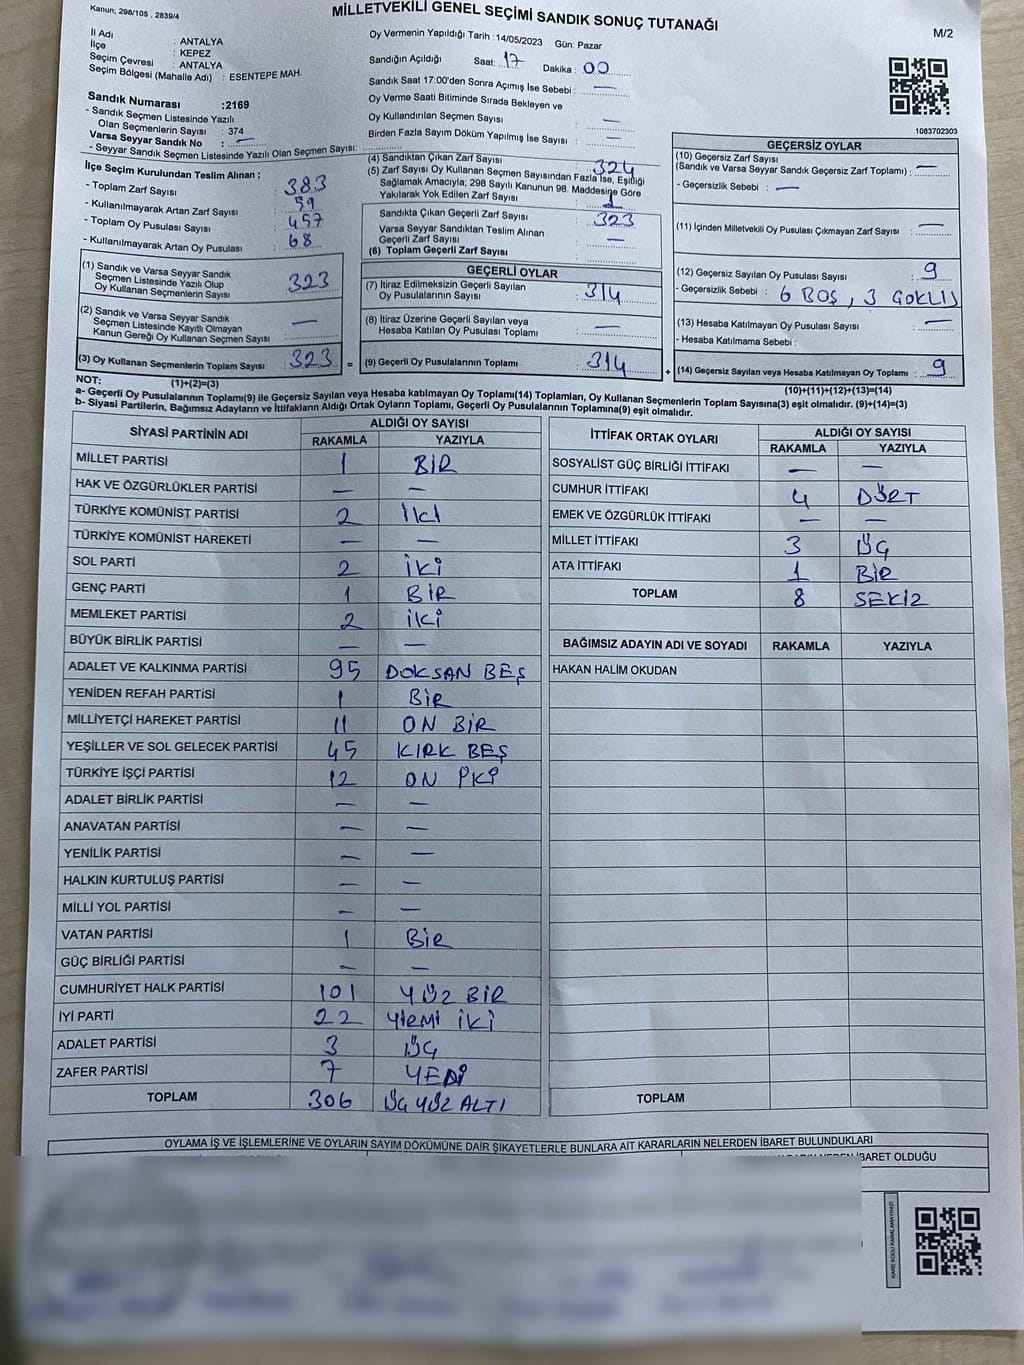 Kanun; 298/105 , 2839/4
MİLLETVEKİLİ GENEL SEÇİMİ SANDIK SONUÇ TUTANAĞI
M/2
İl Adı : ANTALYA
İlçe : KEPEZ
Seçim Çevresi : ANTALYA
Seçim Bölgesi (Mahalle Adı) : ESENTEPE MAH.
Sandık Numarası :2169
- Sandık Seçmen Listesinde Yazılı
Olan Seçmenlerin Sayısı : 374
Varsa Seyyar Sandık No : —
- Seyyar Sandık Seçmen Listesinde Yazılı Olan Seçmen Sayısı:
Oy Vermenin Yapıldığı Tarih :14/05/2023 Gün: Pazar
Sandığın Açıldığı Saat: 17 Dakika : 00
Sandık Saat 17:00'den Sonra Açımış İse Sebebi : —
Oy Verme Saati Bitiminde Sırada Bekleyen ve
Oy Kullandırılan Seçmen Sayısı : —
Birden Fazla Sayım Döküm Yapılmış İse Sayısı : —
1083702303
İlçe Seçim Kurulundan Teslim Alınan ;
- Toplam Zarf Sayısı : 383
- Kullanılmayarak Artan Zarf Sayısı : 59
- Toplam Oy Pusulası Sayısı : 457
- Kullanılmayarak Artan Oy Pusulası : 68
(1) Sandık ve Varsa Seyyar Sandık
Seçmen Listesinde Yazılı Olup
Oy Kullanan Seçmenlerin Sayısı : 323
(2) Sandık ve Varsa Seyyar Sandık
Seçmen Listesinde Kayıtlı Olmayan
Kanun Gereği Oy Kullanan Seçmen Sayısı : —
(3) Oy Kullanan Seçmenlerin Toplam Sayısı : 323 =
(4) Sandıktan Çıkan Zarf Sayısı : 324
(5) Zarf Sayısı Oy Kullanan Seçmen Sayısından Fazla İse, Eşitliği
Sağlamak Amacıyla; 298 Sayılı Kanunun 98. Maddesine Göre
Yakılarak Yok Edilen Zarf Sayısı : 1
Sandıkta Çıkan Geçerli Zarf Sayısı : 323
Varsa Seyyar Sandıktan Teslim Alınan
Geçerli Zarf Sayısı : —
(6) Toplam Geçerli Zarf Sayısı :
GEÇERLİ OYLAR
(7) İtiraz Edilmeksizin Geçerli Sayılan
Oy Pusulalarının Sayısı : 314
(8) İtiraz Üzerine Geçerli Sayılan veya
Hesaba Katılan Oy Pusulası Toplamı : —
(9) Geçerli Oy Pusulalarının Toplamı : 314 +
GEÇERSİZ OYLAR
(10) Geçersiz Zarf Sayısı
(Sandık ve Varsa Seyyar Sandık Geçersiz Zarf Toplamı) : —
- Geçersizlik Sebebi : —
(11) İçinden Milletvekili Oy Pusulası Çıkmayan Zarf Sayısı : —
(12) Geçersiz Sayılan Oy Pusulası Sayısı : 9
- Geçersizlik Sebebi : 6 BOŞ , 3 ÇOKLU
(13) Hesaba Katılmayan Oy Pusulası Sayısı : —
- Hesaba Katılmama Sebebi :
(14) Geçersiz Sayılan veya Hesaba Katılmayan Oy Toplamı : 9
NOT: (1)+(2)=(3) (10)+(11)+(12)+(13)=(14)
a- Geçerli Oy Pusulaları Toplamı(9) ile Geçersiz Sayılan veya Hesaba katılmayan Oy Toplamı(14) Toplamları, Oy Kullanan Seçmenlerin Toplam Sayısına(3) eşit olmalıdır. (9)+(14)=(3)
b- Siyasi Partilerin, Bağımsız Adayların ve İttifakların Aldığı Ortak Oyların Toplamı, Geçerli Oy Pusulalarının Toplamına(9) eşit olmalıdır.
SİYASİ PARTİNİN ADI ALDIĞI OY SAYISI
RAKAMLA YAZIYLA
MİLLET PARTİSİ 1 BİR
HAK VE ÖZGÜRLÜKLER PARTİSİ — —
TÜRKİYE KOMÜNİST PARTİSİ 2 İKİ
TÜRKİYE KOMÜNİST HAREKETİ — —
SOL PARTİ 2 İKİ
GENÇ PARTİ 1 BİR
MEMLEKET PARTİSİ 2 İKİ
BÜYÜK BİRLİK PARTİSİ — —
ADALET VE KALKINMA PARTİSİ 95 DOKSAN BEŞ
YENİDEN REFAH PARTİSİ 1 BİR
MİLLİYETÇİ HAREKET PARTİSİ 11 ON BİR
YEŞİLLER VE SOL GELECEK PARTİSİ 45 KIRK BEŞ
TÜRKİYE İŞÇİ PARTİSİ 12 ON İKİ
ADALET BİRLİK PARTİSİ — —
ANAVATAN PARTİSİ — —
YENİLİK PARTİSİ — —
HALKIN KURTULUŞ PARTİSİ — —
MİLLİ YOL PARTİSİ — —
VATAN PARTİSİ 1 BİR
GÜÇ BİRLİĞİ PARTİSİ — —
CUMHURİYET HALK PARTİSİ 101 YÜZ BİR
İYİ PARTİ 22 YİRMİ İKİ
ADALET PARTİSİ 3 ÜÇ
ZAFER PARTİSİ 7 YEDİ
TOPLAM 306 ÜÇ YÜZ ALTI
İTTİFAK ORTAK OYLARI ALDIĞI OY SAYISI
RAKAMLA YAZIYLA
SOSYALİST GÜÇ BİRLİĞİ İTTİFAKI — —
CUMHUR İTTİFAKI 4 DÖRT
EMEK VE ÖZGÜRLÜK İTTİFAKI — —
MİLLET İTTİFAKI 3 ÜÇ
ATA İTTİFAKI 1 BİR
TOPLAM 8 SEKİZ
BAĞIMSIZ ADAYIN ADI VE SOYADI RAKAMLA YAZIYLA
HAKAN HALİM OKUDAN
TOPLAM
OYLAMA İŞ VE İŞLEMLERİNE VE OYLARIN SAYIM DÖKÜMÜNE DAİR ŞİKAYETLERLE BUNLARA AİT KARARLARIN NELERDEN İBARET BULUNDUKLARI
İBARET OLDUĞU